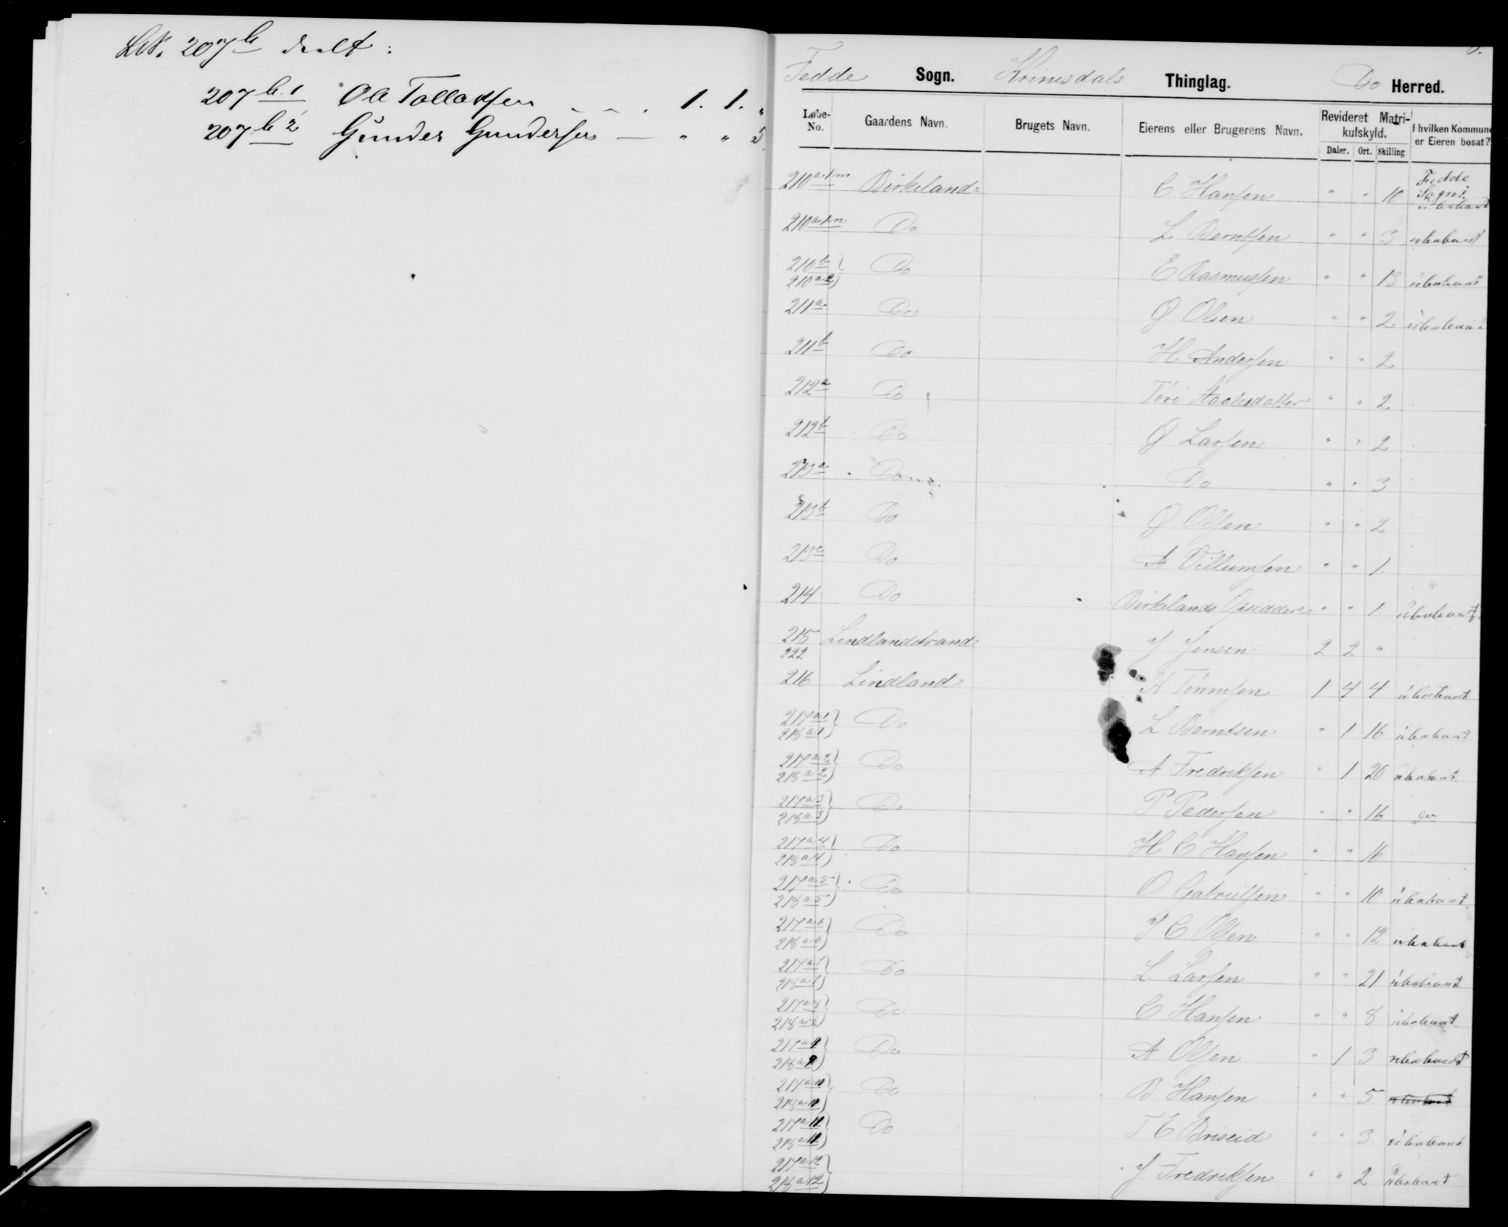 207 b deelt:
207 b.1 O A Tollaksen - - . 1. 1. "
207 b 2 Gunder Gundersen — " " 3
Fedde Sogn. Kvinesdals Thinglag. Do Herred.
Løbe-No. Gaardens Navn. Brugets Navn. Eierens eller Brugerens Navn. Revideret Matrikulskyld. Daler. Ort. Skilling I hvilken Kommune er Eieren bosat?
210 Birkeland C Hansen " " 10 Fedde Sogn ubebout
210 Do L Berntsen " " 3 ubebout
210 b 210 a 2 Do E Rasmussen " " 13 ubebout
211 a Do O Olsen " " 2 ubebout
211 b Do H Andersen " " 2
212 a Do Tori Aadnesdatter " " 2
212 b Do O Larsen " " 2
213 a Do Do " " 3
213 b Do O Olsen " " 2
213 c Do A Villumsen " " 1
214 Do Birkelands Opsiddere " " 1 ubebout
215 222 Lindlandstrand J Jensen 2 2 "
216 Lindland A Tønnesen 1 4 4 ubebout
217 a 1 218 a 1 Do L Berntsen " 1 16 ubebout
217 a 2 218 a 2 Do A Fredriksen " 1 20 ubebout
217 a 3 218 a 3 Do P Pedersen " " 16
217 a 4 218 a 4 Do H C Hansen " " 16
217 a 5 218 a 5 Do O Gabrielsen " " 10 ubebout
217 a 6 218 a 6 Do J C Olsen " " 12 ubebout
217 a 7 218 a 7 Do L Larsen " " 21 ubebout
217 a 8 218 a 8 Do C Hansen " " 8 ubebout
217 a 9 218 a 9 Do A Olsen " 1 3 ubebout
217 a 10 218 a 10 Do B Hansen " " 5 ubebout
217 a 11 218 a 11 Do T E Briseid " " 3 ubebout
217 a 12 218 a 12 J Fredriksen " " 2 ubebout